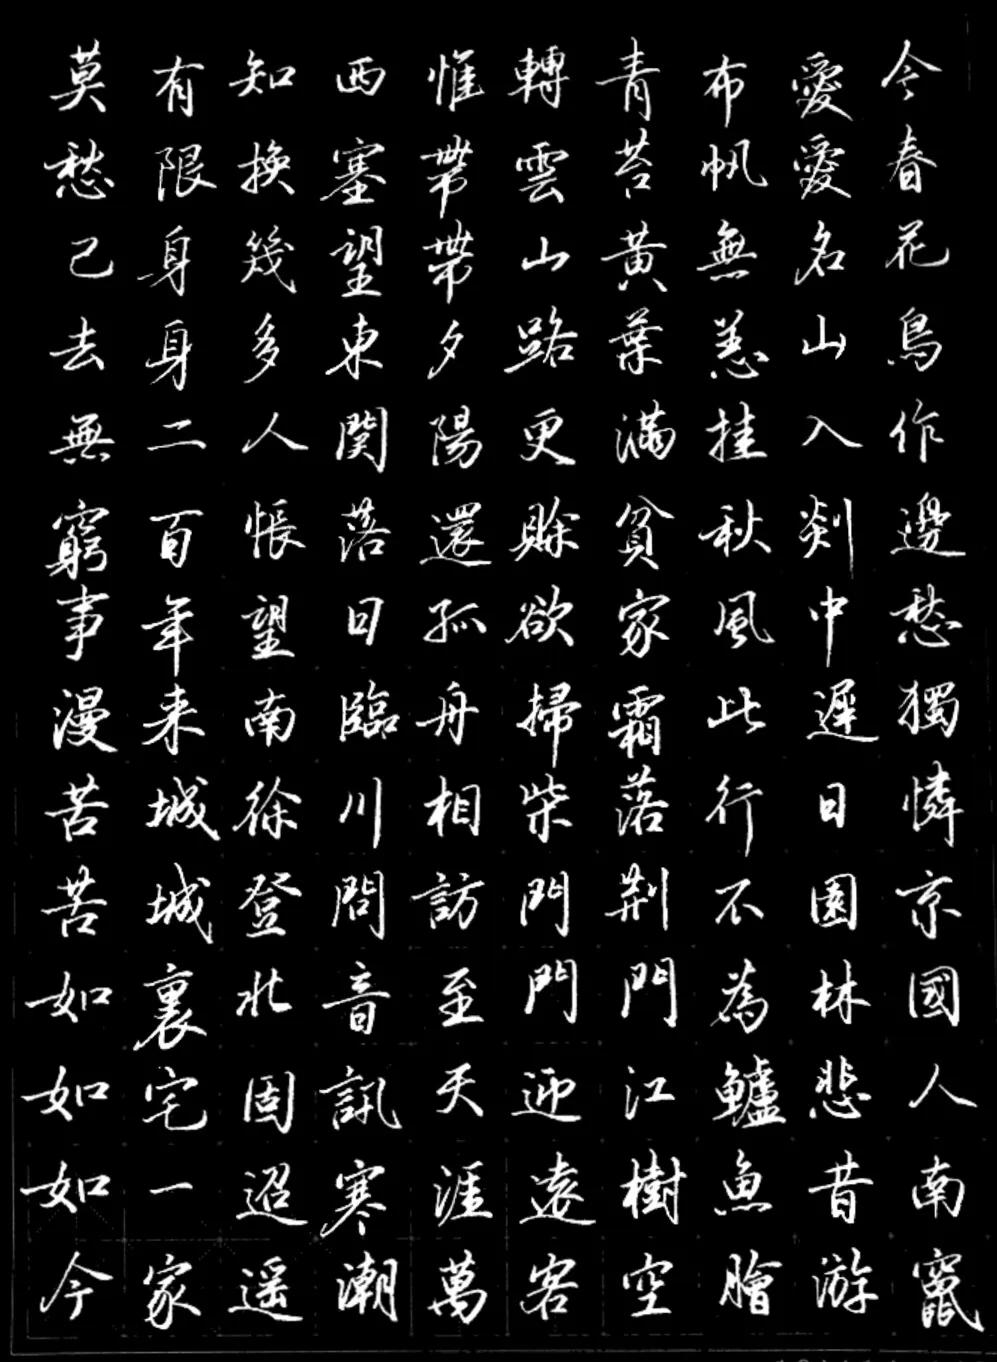 今春花鳥作邊愁獨憐京國人南竄
愛愛名山入剡中遲日園林悲昔游
布帆無恙挂秋風此行不為鱸魚膾
青苔黃葉滿貧家霜落荆門江樹空
轉雲山路更賒欲掃柴門門迎遠客
惟帶帶夕陽還孤舟相訪至天涯萬
西塞望東関落日臨川問音訊寒潮
知換幾多人悵望南徐登北固迢遥
有限身身二百年来城城裏宅一家
莫愁已去無窮事漫苦苦如如如今